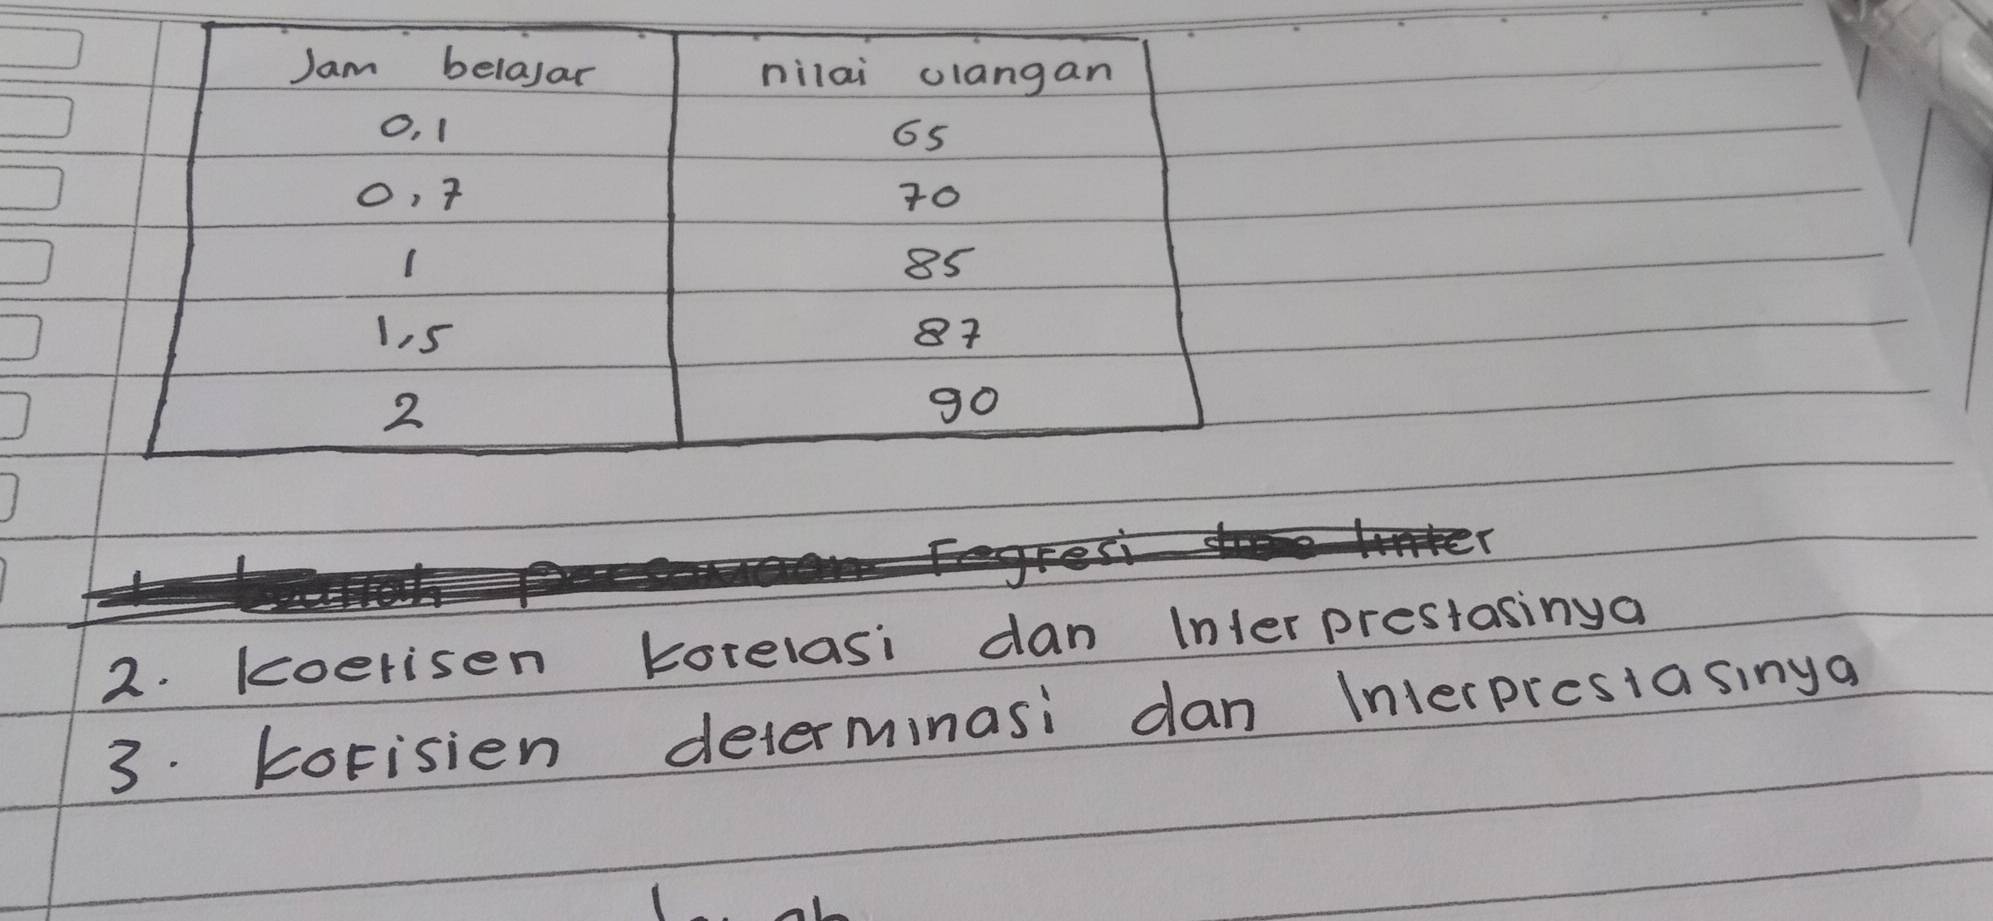 Jam belajar nilai ulangan
0,1 65
0,7 70
1 85
1,5 87
2 90
regresi linier
2. Koefisen korelasi dan Interprestasinya
3. Kofisien determinasi dan Interprestasinya